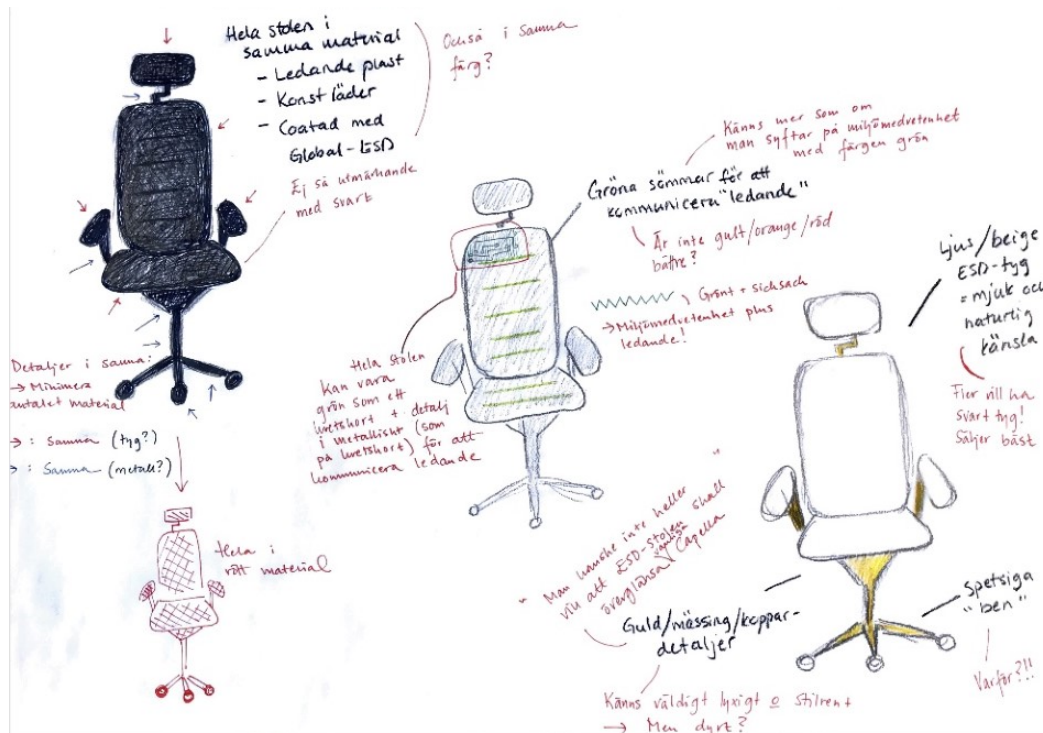 Hela stolen i
samma material
- Ledande plast
- Konstläder
- Coatad med
Global-ESD
Också i samma
färg?
Ej så utmärkande
med svart
Detaljer i samma:
→ Minimera
antalet material
→ : Samma (tyg?)
→ : Samma (metall?)
Hela i
rött material
Känns mer som om
man syftar på miljömedvetenhet
med färgen grön
Gröna sömmar för att
kommunicera "ledande"
Är inte gult/orange/röd
bättre?
Grönt + sicksack
→ Miljömedvetenhet plus
ledande!
Hela stolen
kan vara
grön som ett
kretskort + detalj
i metalliskt (som
på kretskort) för att
kommunicera ledande
Ljus/beige
ESD-tyg
= mjuk och
naturlig
känsla
Fler vill ha
svart tyg!
Säljer bäst
"Man kanske inte heller
vill att ESD-stolen skall
överglänsa vanliga Capella"
Guld/mässing/koppar-
detaljer
Känns väldigt lyxigt o stilrent
→ Men dyrt?
Spetsiga
"ben"
Varför?!!